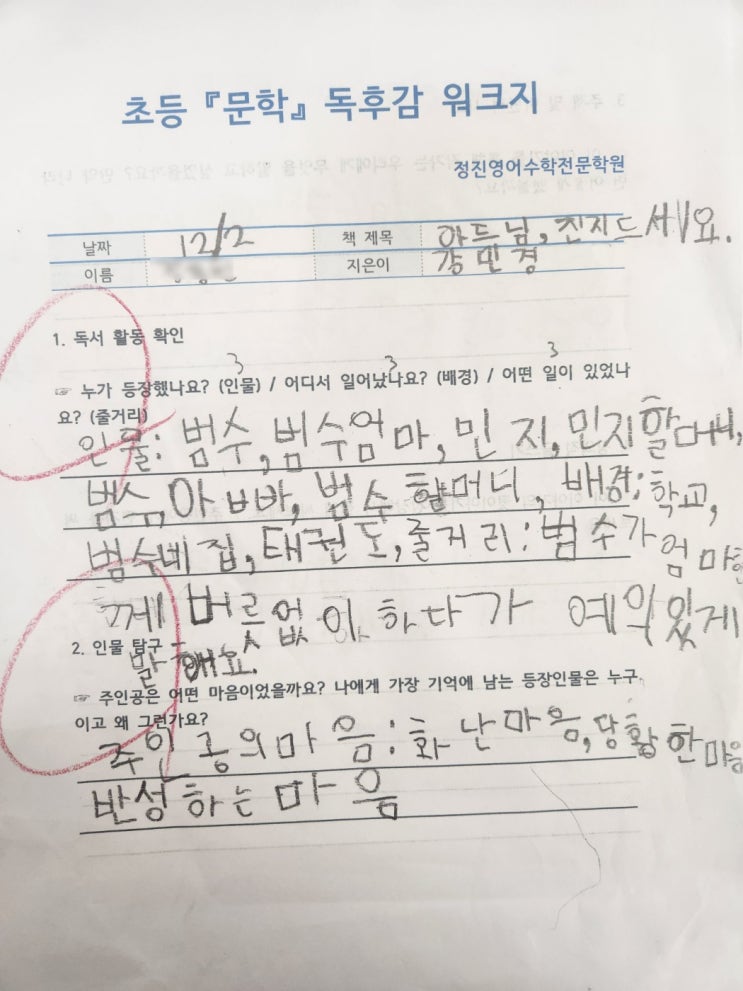 초등 『문학』 독후감 워크지
정진영어수학전문학원
날짜 12/2 책 제목 아드님, 진지드세요.
이름 지은이 강민경
1. 독서 활동 확인
3 3 3
☞ 누가 등장했나요? (인물) / 어디서 일어났나요? (배경) / 어떤 일이 있었나
요? (줄거리)
인물: 범수, 범수엄마, 민지, 민지할머니,
범수아빠, 범수 할머니, 배경: 학교,
범수네 집, 태권도, 줄거리: 범수가 엄마한
께 버릇없이 하다가 예의있게
2. 인물 탐구
말해요.
☞ 주인공은 어떤 마음이었을까요? 나에게 가장 기억에 남는 등장인물은 누구
이고 왜 그런가요?
주인공의마음: 화난마음, 당황한마음
반성하는마음